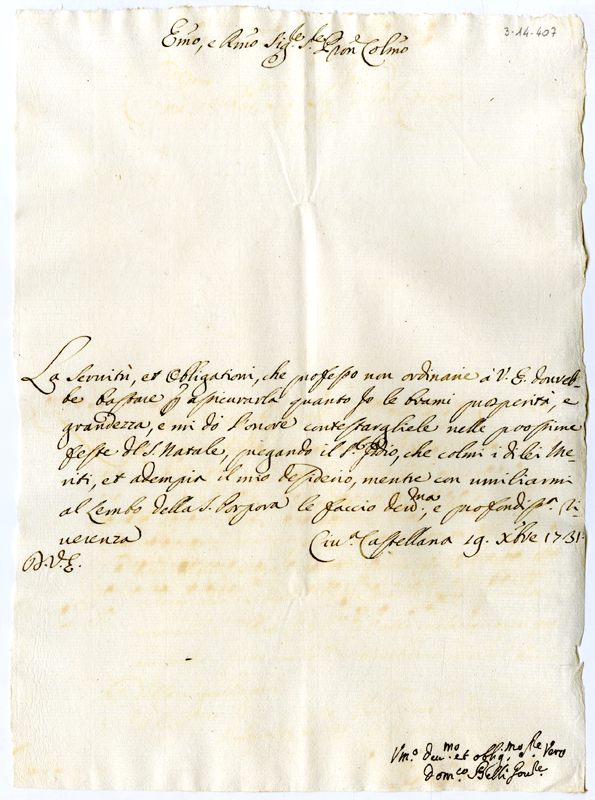 3-14-407
Emo, e Rmo Sig.re S.re Pron Colmo
La Seruitù, et Obligationi, che professo non ordinarie à V. E. doureb-
be bastare p assicurarla quanto Io le brami prosperità, e
grandezza, e mi dò l'onore contestargliele nelle prossime
feste del S. Natale, pregando il S.re Iddio, che colmi i di lei Me-
riti, et adempia il mio desiderio, mentre con umiliarmi
al Lembo della S. Porpora le faccio deu.ma, e profondiss.a ri
uerenza
Ciu.a Castellana 19. Xbre 1731.
D. V. E.
Vm.o deu.mo et oblig.mo Se.re Vero
Dom.co Belli Gou.re